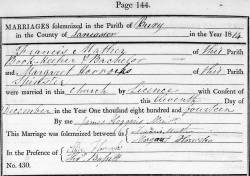 Page 144.
MARRIAGES solemnized in the Parish of Bury
in the County of Lancaster in the Year 1814
Francis Mather of this Parish
Book-keeper & Bachelor
and Margaret Horrocks of this Parish
Spinster
were married in this Church by Licence with Consent of
this eleventh Day of
December in the Year One thousand eight hundred and fourteen
By me James Higgins
This Marriage was solemnized between us
Margaret Horrocks
In the Presence of
No. 430.